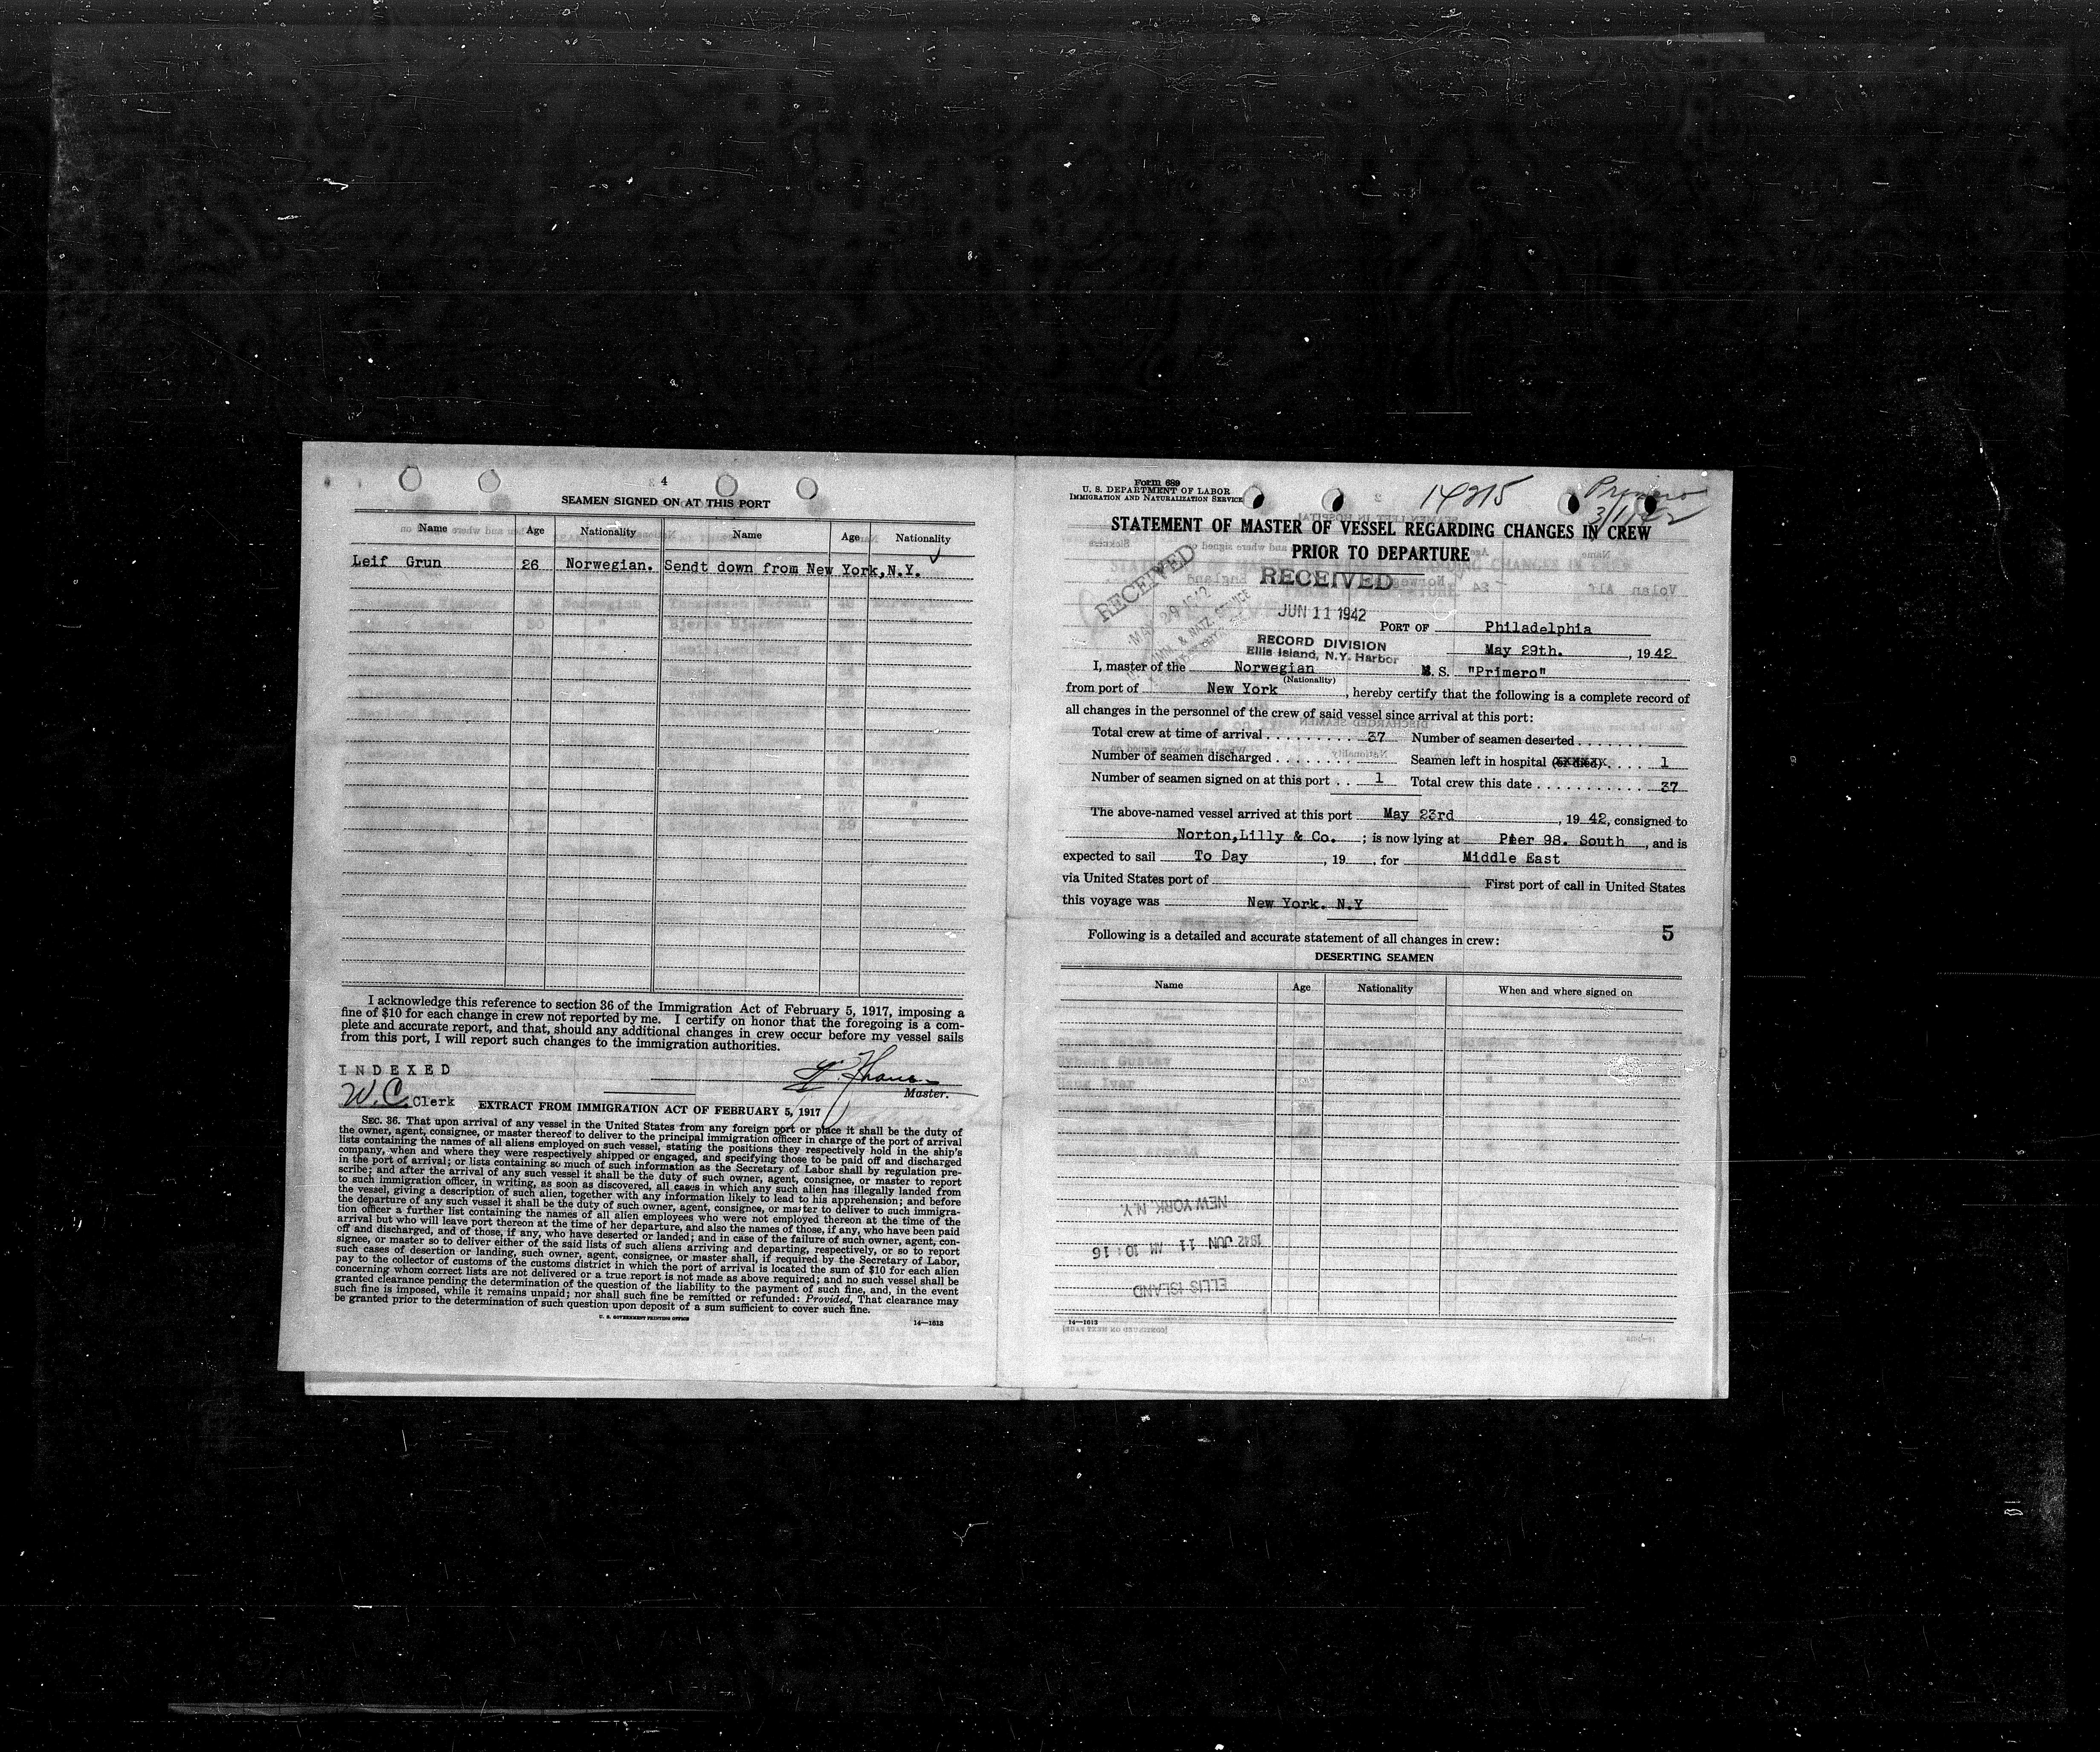 4
SEAMEN SIGNED ON AT THIS PORT
Name Age Nationality Name Age Nationality
Leif Grun 26 Norwegian. Sendt down from New York,N.Y.
I acknowledge this reference to section 36 of the Immigration Act of February 5, 1917, imposing a
fine of $10 for each change in crew not reported by me. I certify on honor that the foregoing is a com-
plete and accurate report, and that, should any additional changes in crew occur before my vessel sails
from this port, I will report such changes to the immigration authorities.
INDEXED
Master.
W.C. Clerk
EXTRACT FROM IMMIGRATION ACT OF FEBRUARY 5, 1917
SEC. 36. That upon arrival of any vessel in the United States from any foreign port or place it shall be the duty of
the owner, agent, consignee, or master thereof to deliver to the principal immigration officer in charge of the port of arrival
lists containing the names of all aliens employed on such vessel, stating the positions they respectively hold in the ship's
company, when and where they were respectively shipped or engaged, and specifying those to be paid off and discharged
in the port of arrival; or lists containing so much of such information as the Secretary of Labor shall by regulation pre-
scribe; and after the arrival of any such vessel it shall be the duty of such owner, agent, consignee, or master to report
to such immigration officer, in writing, as soon as discovered, all cases in which any such alien has illegally landed from
the vessel, giving a description of such alien, together with any information likely to lead to his apprehension; and before
the departure of any such vessel it shall be the duty of such owner, agent, consignee, or master to deliver to such immigra-
tion officer a further list containing the names of all alien employees who were not employed thereon at the time of the
arrival but who will leave port thereon at the time of her departure, and also the names of those, if any, who have been paid
off and discharged, and of those, if any, who have deserted or landed; and in case of the failure of such owner, agent, con-
signee, or master so to deliver either of the said lists of such aliens arriving and departing, respectively, or so to report
such cases of desertion or landing, such owner, agent, consignee, or master shall, if required by the Secretary of Labor,
pay to the collector of customs of the customs district in which the port of arrival is located the sum of $10 for each alien
concerning whom correct lists are not delivered or a true report is not made as above required; and no such vessel shall be
granted clearance pending the determination of the question of the liability to the payment of such fine, and, in the event
such fine is imposed, while it remains unpaid; nor shall such fine be remitted or refunded: Provided, That clearance may
be granted prior to the determination of such question upon deposit of a sum sufficient to cover such fine.
U. S. GOVERNMENT PRINTING OFFICE
14—1613
Form 689
U. S. DEPARTMENT OF LABOR
IMMIGRATION AND NATURALIZATION SERVICE
14215
Primero
3/1/42
STATEMENT OF MASTER OF VESSEL REGARDING CHANGES IN CREW
PRIOR TO DEPARTURE
RECEIVED
MAY 29 1942
IMM. & NATZ. SERVICE
RECEIVED
JUN 11 1942
RECORD DIVISION
Ellis Island, N.Y. Harbor
PORT OF Philadelphia
May 29th. , 19 42
I, master of the Norwegian M. S. "Primero"
(Nationality)
from port of New York , hereby certify that the following is a complete record of
all changes in the personnel of the crew of said vessel since arrival at this port:
Total crew at time of arrival 37 Number of seamen deserted
Number of seamen discharged Seamen left in hospital (or died) 1
Number of seamen signed on at this port 1 Total crew this date 37
The above-named vessel arrived at this port May 23rd , 19 42, consigned to
Norton,Lilly & Co. ; is now lying at Pier 98. South , and is
expected to sail To Day , 19 , for Middle East
via United States port of First port of call in United States
this voyage was New York. N.Y
Following is a detailed and accurate statement of all changes in crew:
5
DESERTING SEAMEN
Name Age Nationality When and where signed on
NEW YORK N.Y.
1942 JUN 11 AM 10:16
ELLIS ISLAND
14—1613